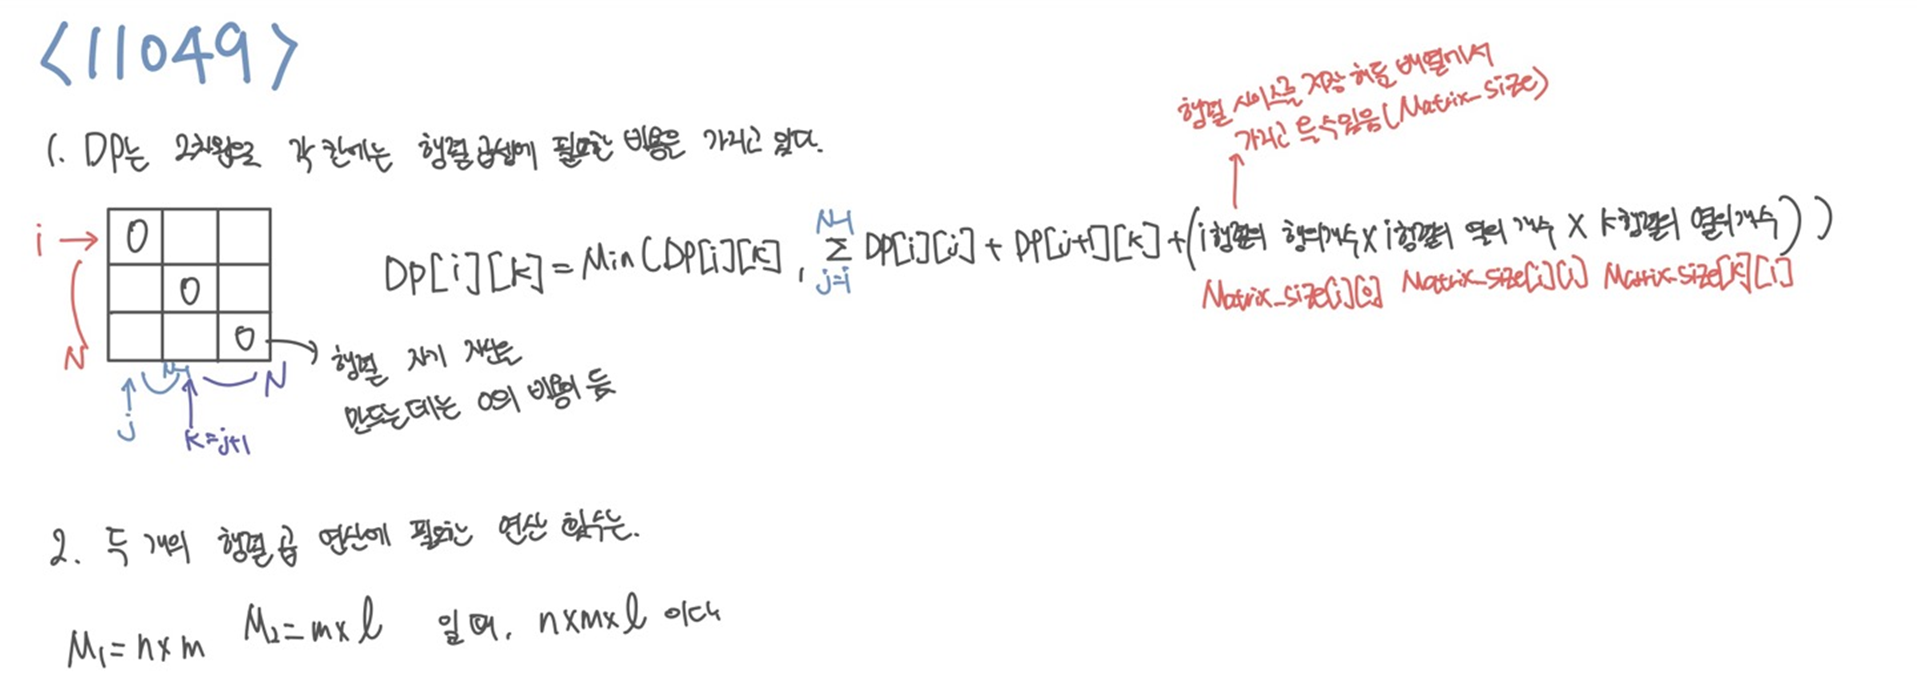 <11049>
행렬 사이즈를 저장 해둔 배열에서
가지고 올수있음(Matrix_size)
1. DP는 2차원으로 각 칸에는 행렬 곱셈에 필요한 비용을 가지고 있다.
i
N
0
0
0
j
N-1
k=j+1
N
DP[i][k]=Min(DP[i][k], N-1 Σ j=i DP[i][j] + DP[j+1][k] + (i행렬의 행의개수 x i행렬의 열의 개수 x k행렬의 열의개수))
Matrix_size[i][0] Matrix_size[i][1] Matrix_size[k][1]
행렬 자기 자신을
만드는데는 0의 비용이 듦
2. 두 개의 행렬 곱 연산에 필요한 연산 횟수는.
M₁=n×m M₂=m×l 일 때, n×m×l 이다